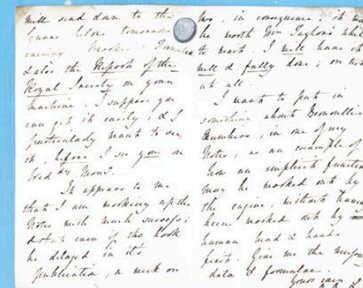 will send down to the
evening
& also the Report of the
Royal Society on your
machine. I suppose you
can get it easily; & I
particularly want to see
it, before I see you on
Wed dy Morng.
It appears to me
that I am working up the
Notes with much success;
& that even if the book
be delayed in it's
publication, a week or
two, in consequence, it wd
be worth Mr Taylor's while
to wait. I will have it
well & fully done; or not
at all.
I want to put in
something about Bernoulli's
Numbers, in one of my
Notes, as an example of
how an implicit function
may be worked out by
the engine, without having
been worked out by
human head & hands
first. Give me the necessary
data & formulae.
Yours ever